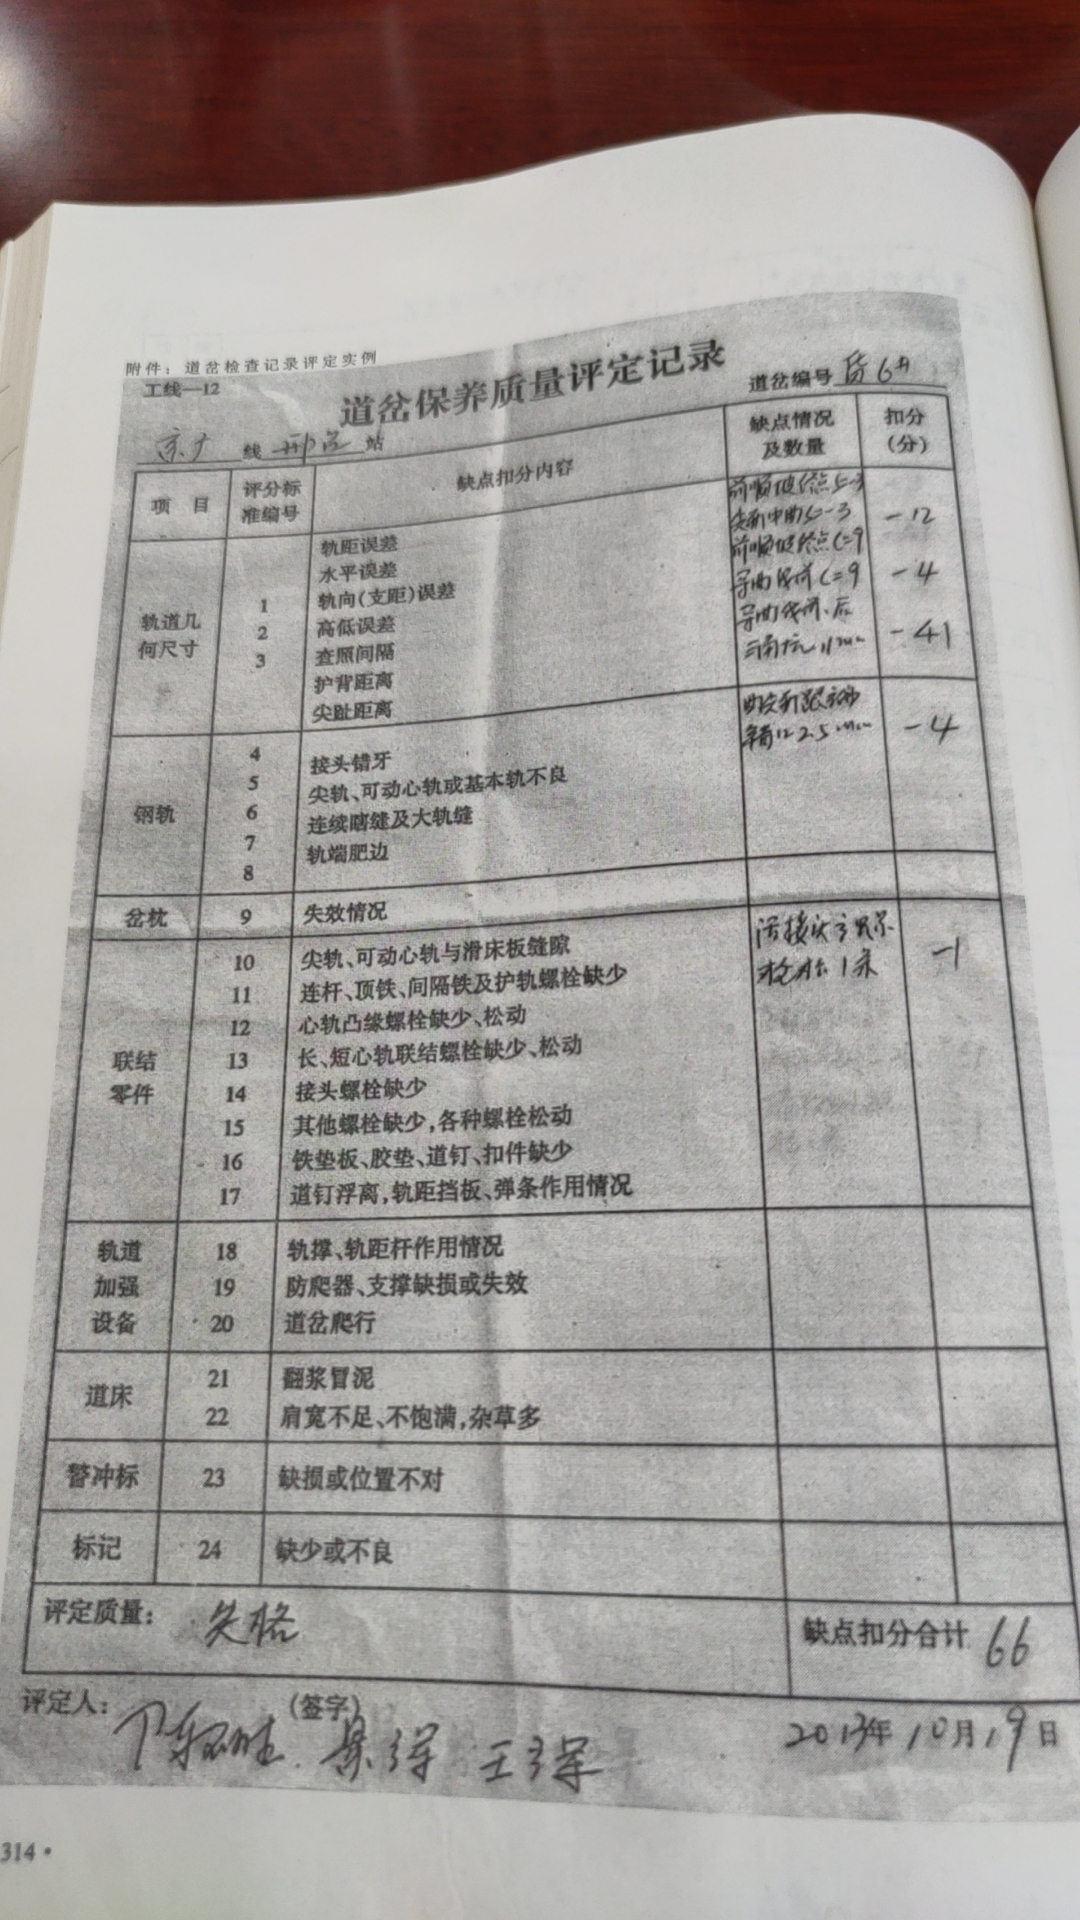 附件：道岔检查记录评定实例
工线—12
道岔保养质量评定记录
道岔编号 6#
京广 线 站
项 目
评分标
准编号
缺点扣分内容
缺点情况
及数量
扣分
(分)
轨道几
何尺寸
1
2
3
轨距误差
水平误差
轨向(支距)误差
高低误差
查照间隔
护背距离
尖趾距离
前顺坡终点
-12
前顺坡终点
-4
导曲线前、后
-41
钢轨
4
5
6
7
8
接头错牙
尖轨、可动心轨或基本轨不良
连续瞎缝及大轨缝
轨端肥边
2.5mm
-4
岔枕
9
失效情况
联结
零件
10 尖轨、可动心轨与滑床板缝隙
11 连杆、顶铁、间隔铁及护轨螺栓缺少
12 心轨凸缘螺栓缺少、松动
13 长、短心轨联结螺栓缺少、松动
14 接头螺栓缺少
15 其他螺栓缺少，各种螺栓松动
16 铁垫板、胶垫、道钉、扣件缺少
17 道钉浮离，轨距挡板、弹条作用情况
-1
轨道
加强
设备
18 轨撑、轨距杆作用情况
19 防爬器、支撑缺损或失效
20 道岔爬行
道床
21 翻浆冒泥
22 肩宽不足、不饱满，杂草多
警冲标 23 缺损或位置不对
标记 24 缺少或不良
评定质量： 失格
缺点扣分合计 66
评定人： (签字)
2013年10月19日
314·